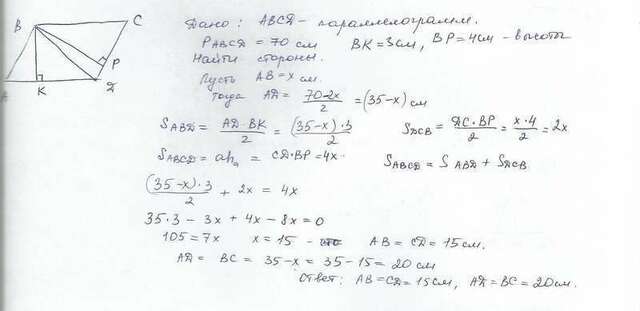 B
C
P
A
K
D
Дано: ABCD – параллелограмм.
PABCD = 70 см BK = 3см, BP = 4см – высоты
Найти стороны.
Пусть AB = x см.
тогда AD = (70-2x)/2 = (35-x) см
SABD = AD·BK/2 = (35-x)·3/2 SDCB = DC·BP/2 = x·4/2 = 2x
SABCD = aha = CD·BP = 4x. SABCD = SABD + SDCB
(35-x)·3/2 + 2x = 4x
35·3 – 3x + 4x – 8x = 0
105 = 7x x = 15 – AB = CD = 15 см.
AD = BC = 35-x = 35-15 = 20 см
Ответ: AB = CD = 15см, AD = BC = 20см.